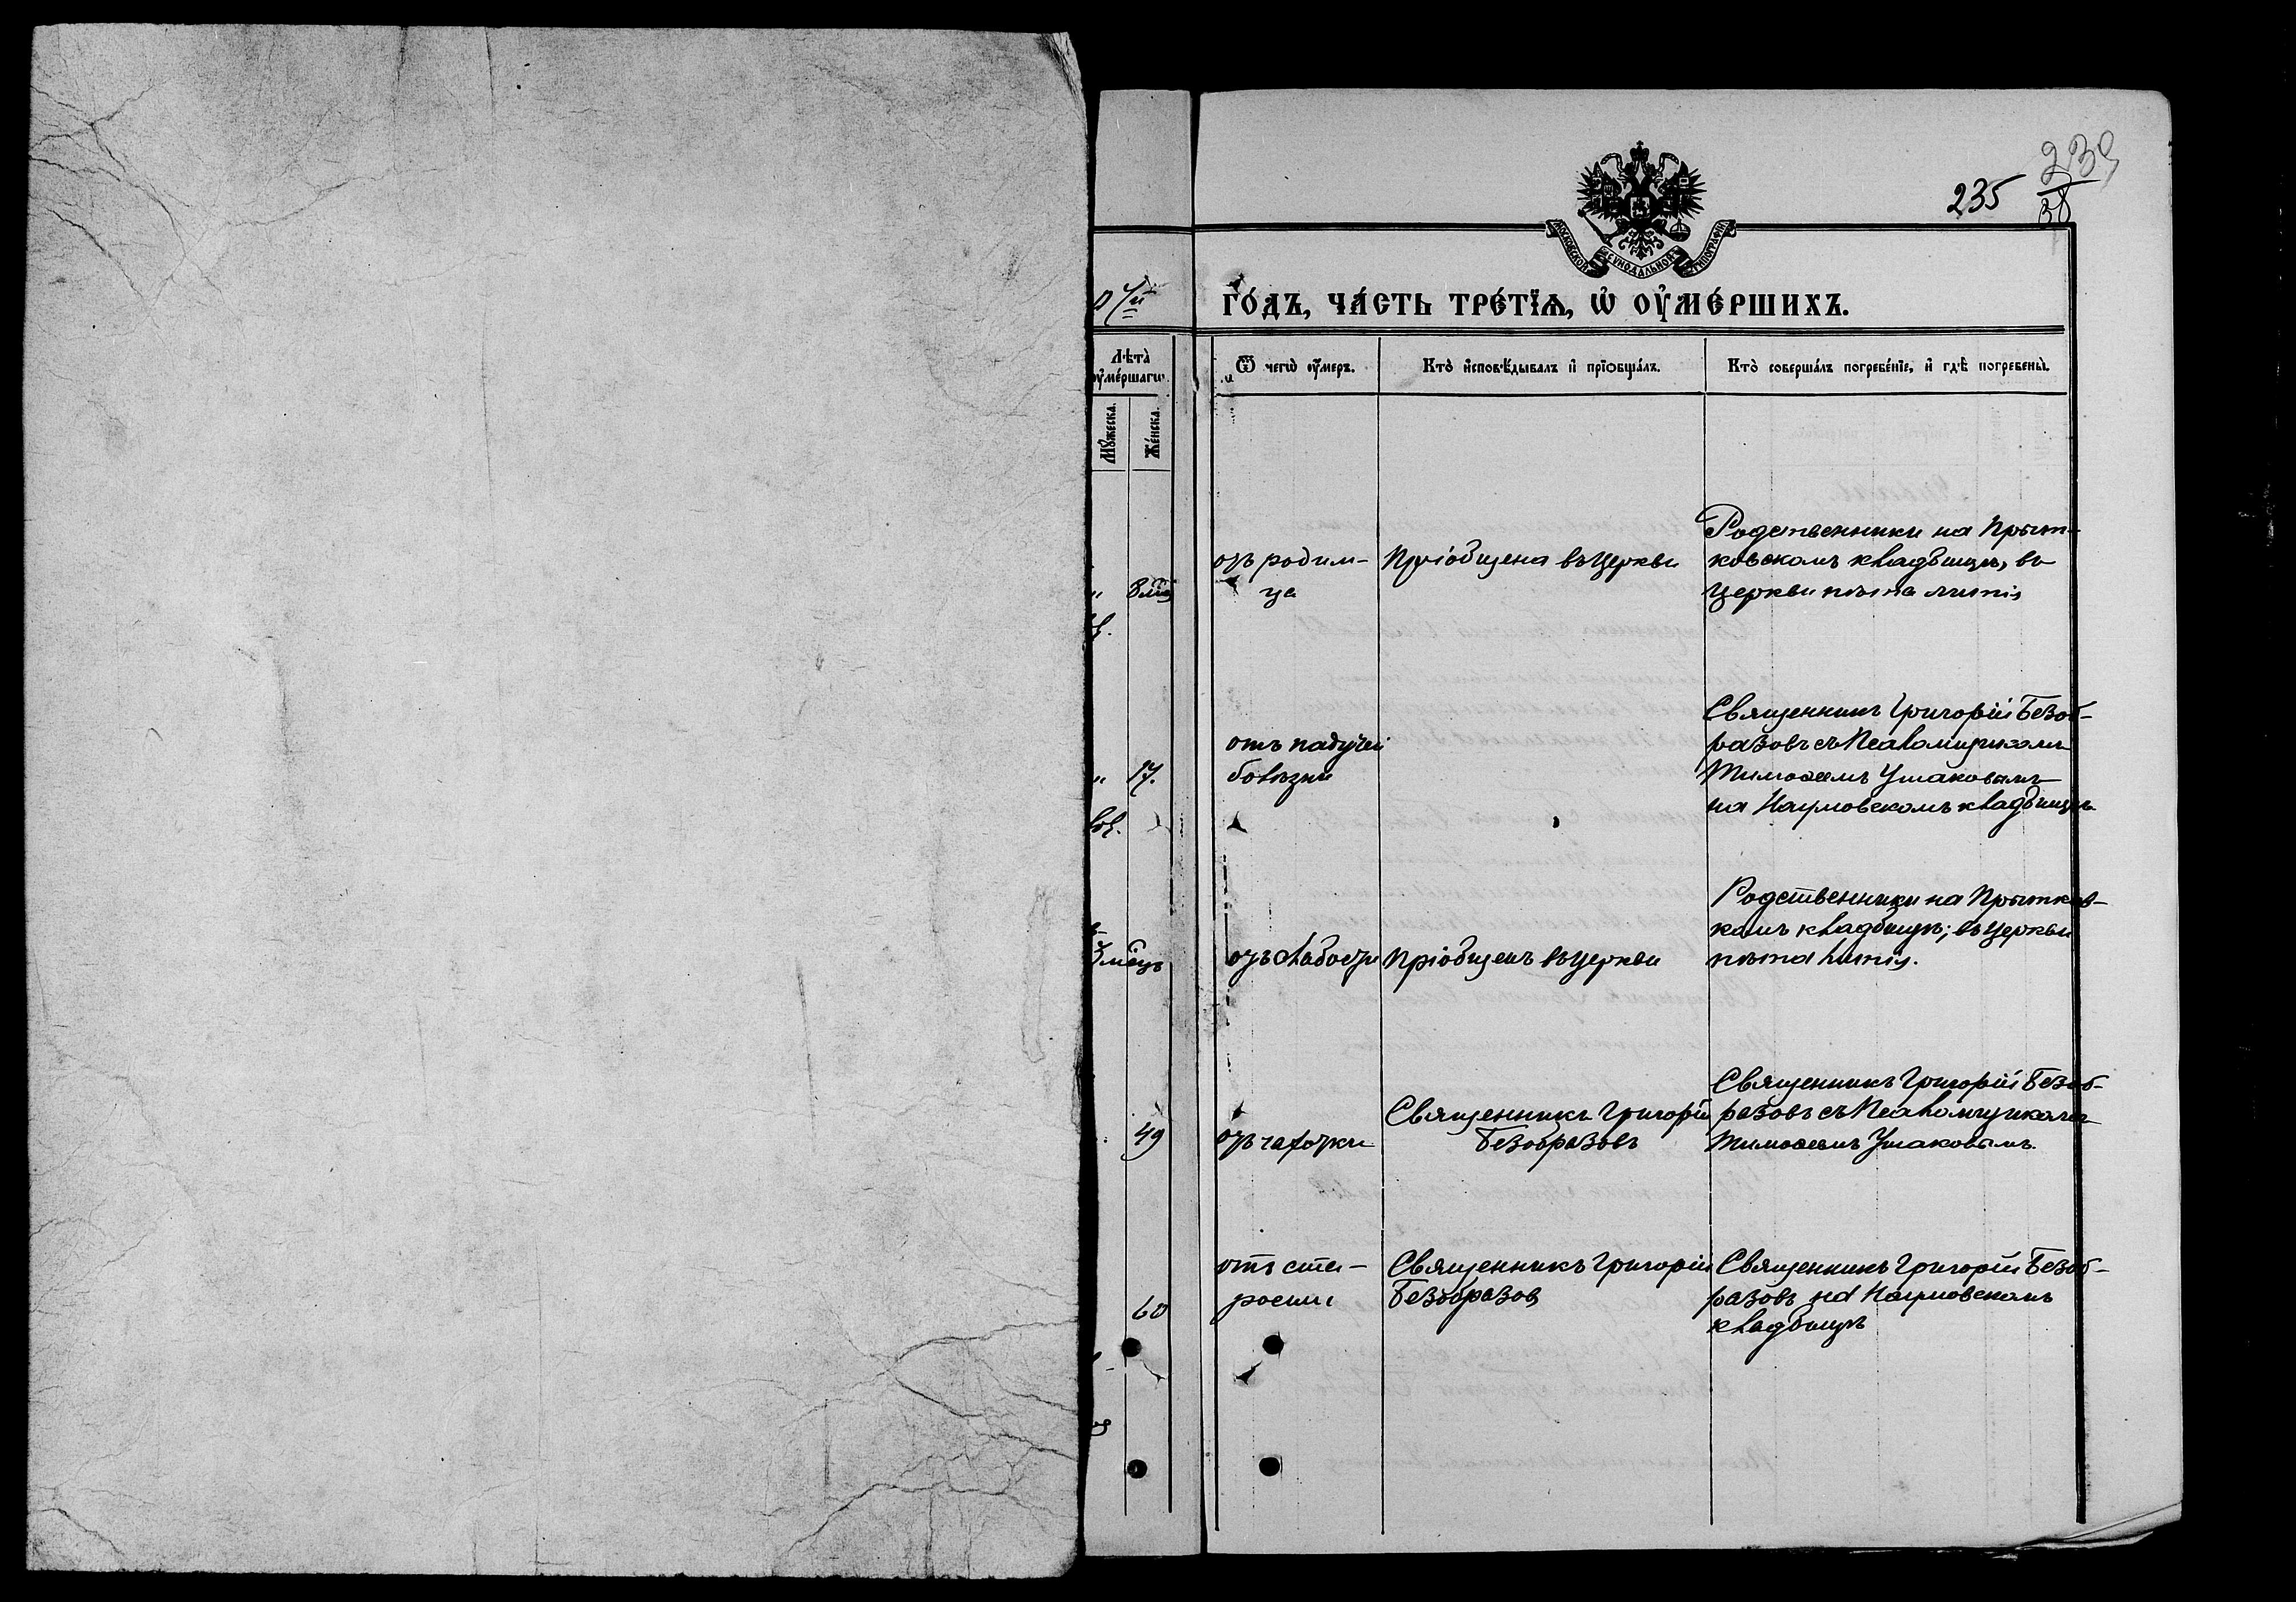 239
235 38
МОСКОВСКОЙ СУНОДАЛЬНОЙ ТИПОГРАФІИ
ГО́ДЪ, ЧА́СТЬ ТРЕ́ТЇѦ, Ѡ҆ ОУ҆МЕ́РШИХЪ.
Лѣ́та̀
оу҆ме́ршагѡ.
Мꙋ́жеска.
Же́нска.
Ѿ чегѡ̀ оу҆́меръ.
Кто̀ и҆сповѣ́дывалъ и҆ прїѡбща́лъ.
Кто̀ соверша́лъ погребе́нїе, и҆ гдѣ̀ погребены̀.
" 8 мѣс
отъ родим-
ца
Пріобщена въ церкви
Родственники на Прыт-
ковскомъ кладбищѣ, въ
церкви пѣта литія
" 17.
отъ падучей
болѣзни
Священникъ Григорій Безоб-
разовъ съ Псаломщикомъ
Тимоѳеемъ Ушаковымъ
на Наумовскомъ кладбищѣ
3 мѣсяцъ
отъ слабости
Пріобщенъ въ церкви
Родственники на Прытков-
комъ кладбищѣ; въ церкви
пѣта литія.
49
отъ чахотки
Священникъ Григорій
Безобразовъ
Священникъ Григорій Безоб-
разовъ съ Псаломщикомъ
Тимоѳеемъ Ушаковымъ
60
отъ ста-
рости
Священникъ Григорій
Безобразов
Священникъ Григорій Безоб-
разовъ на Наумовскомъ
кладбищѣ